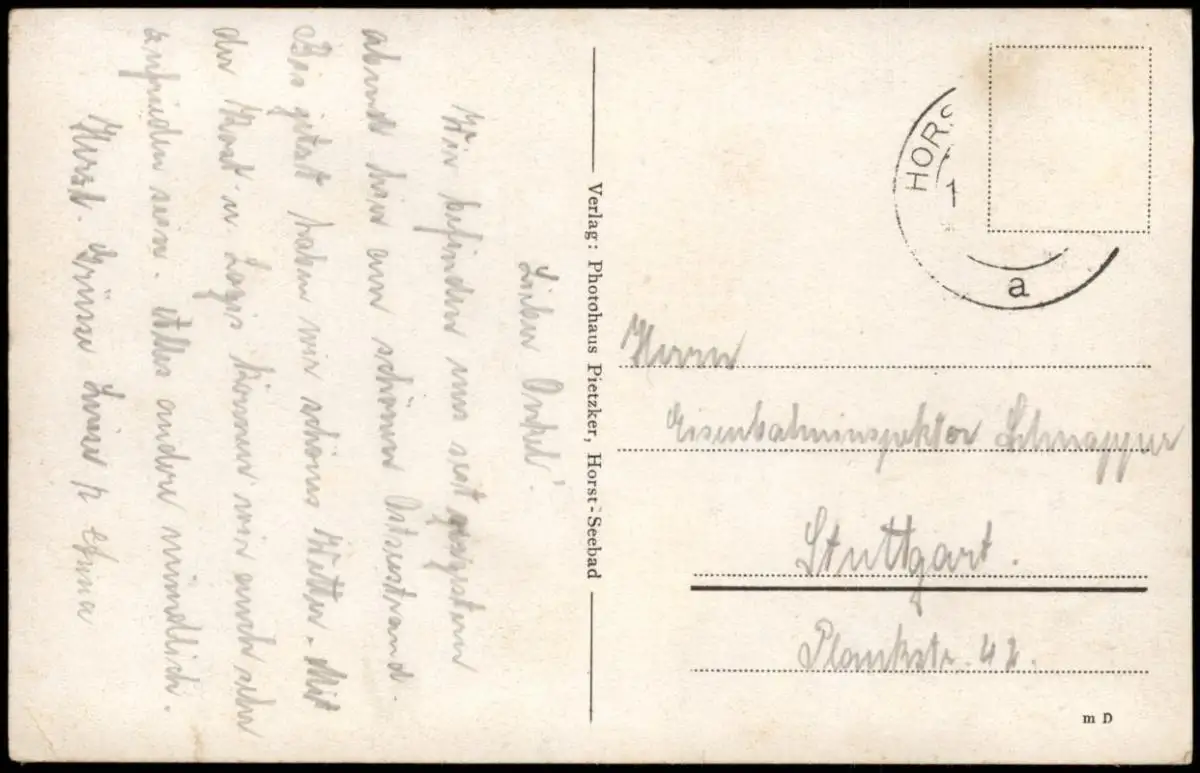 Lieber Onkel!
Wir befinden uns seit gestern
abend hier am schönen Ostseestrand.
Bis jetzt haben wir schönes Wetter. Mit
der Kost u. Logis können wir auch sehr
zufrieden sein. Alles andere mündlich.
Herzl. Grüsse Luise &
Verlag: Photohaus Pietzker, Horst-Seebad
HORS
1
a
Herrn
Eisenbahninspektor Schnapper
Stuttgart.
Plankstr. 42.
m D